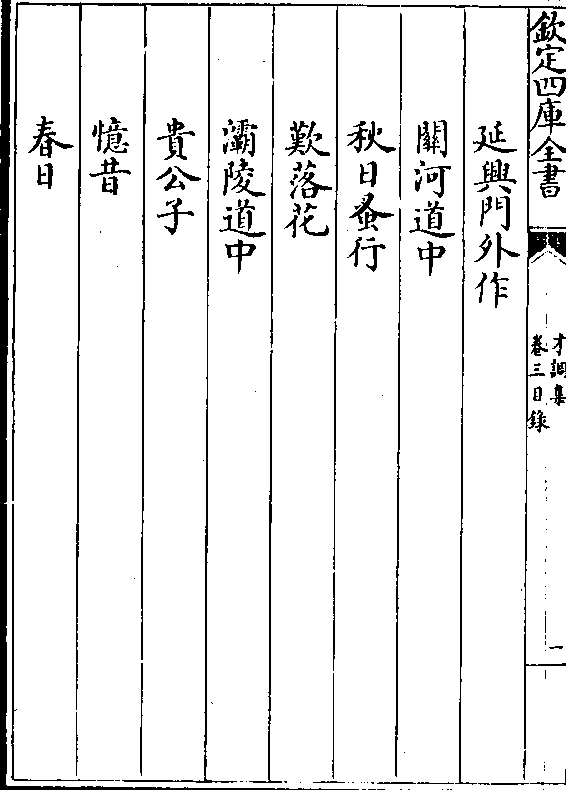 欽定四庫全書
才調集
卷三目錄
一
延興門外作
關河道中
秋日蚤行
歎落花
灞陵道中
貴公子
憶昔
春日